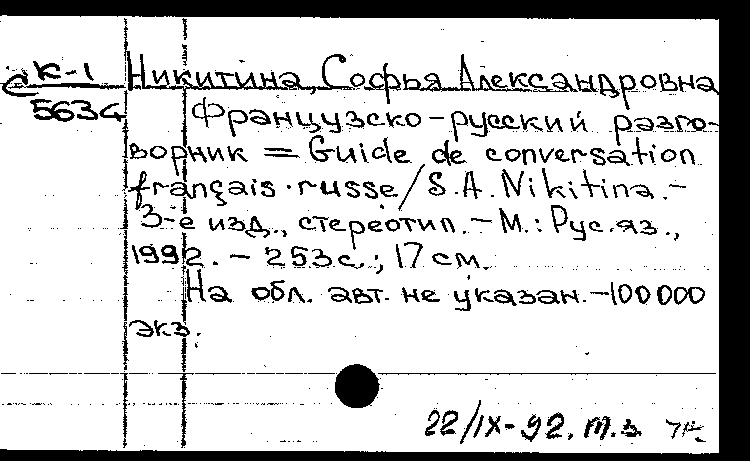 К-1 Никитина, Софья Александровна
5634 Французско-русский разго-
ворник = Guide de conversation
français-russe / S.A. Nikitina. -
3-е изд., стереотип. - М.: Рус.яз.,
1992. - 253с.; 17 см.
На обл. авт. не указан. -100000
экз.
22/IX-92. т.з.